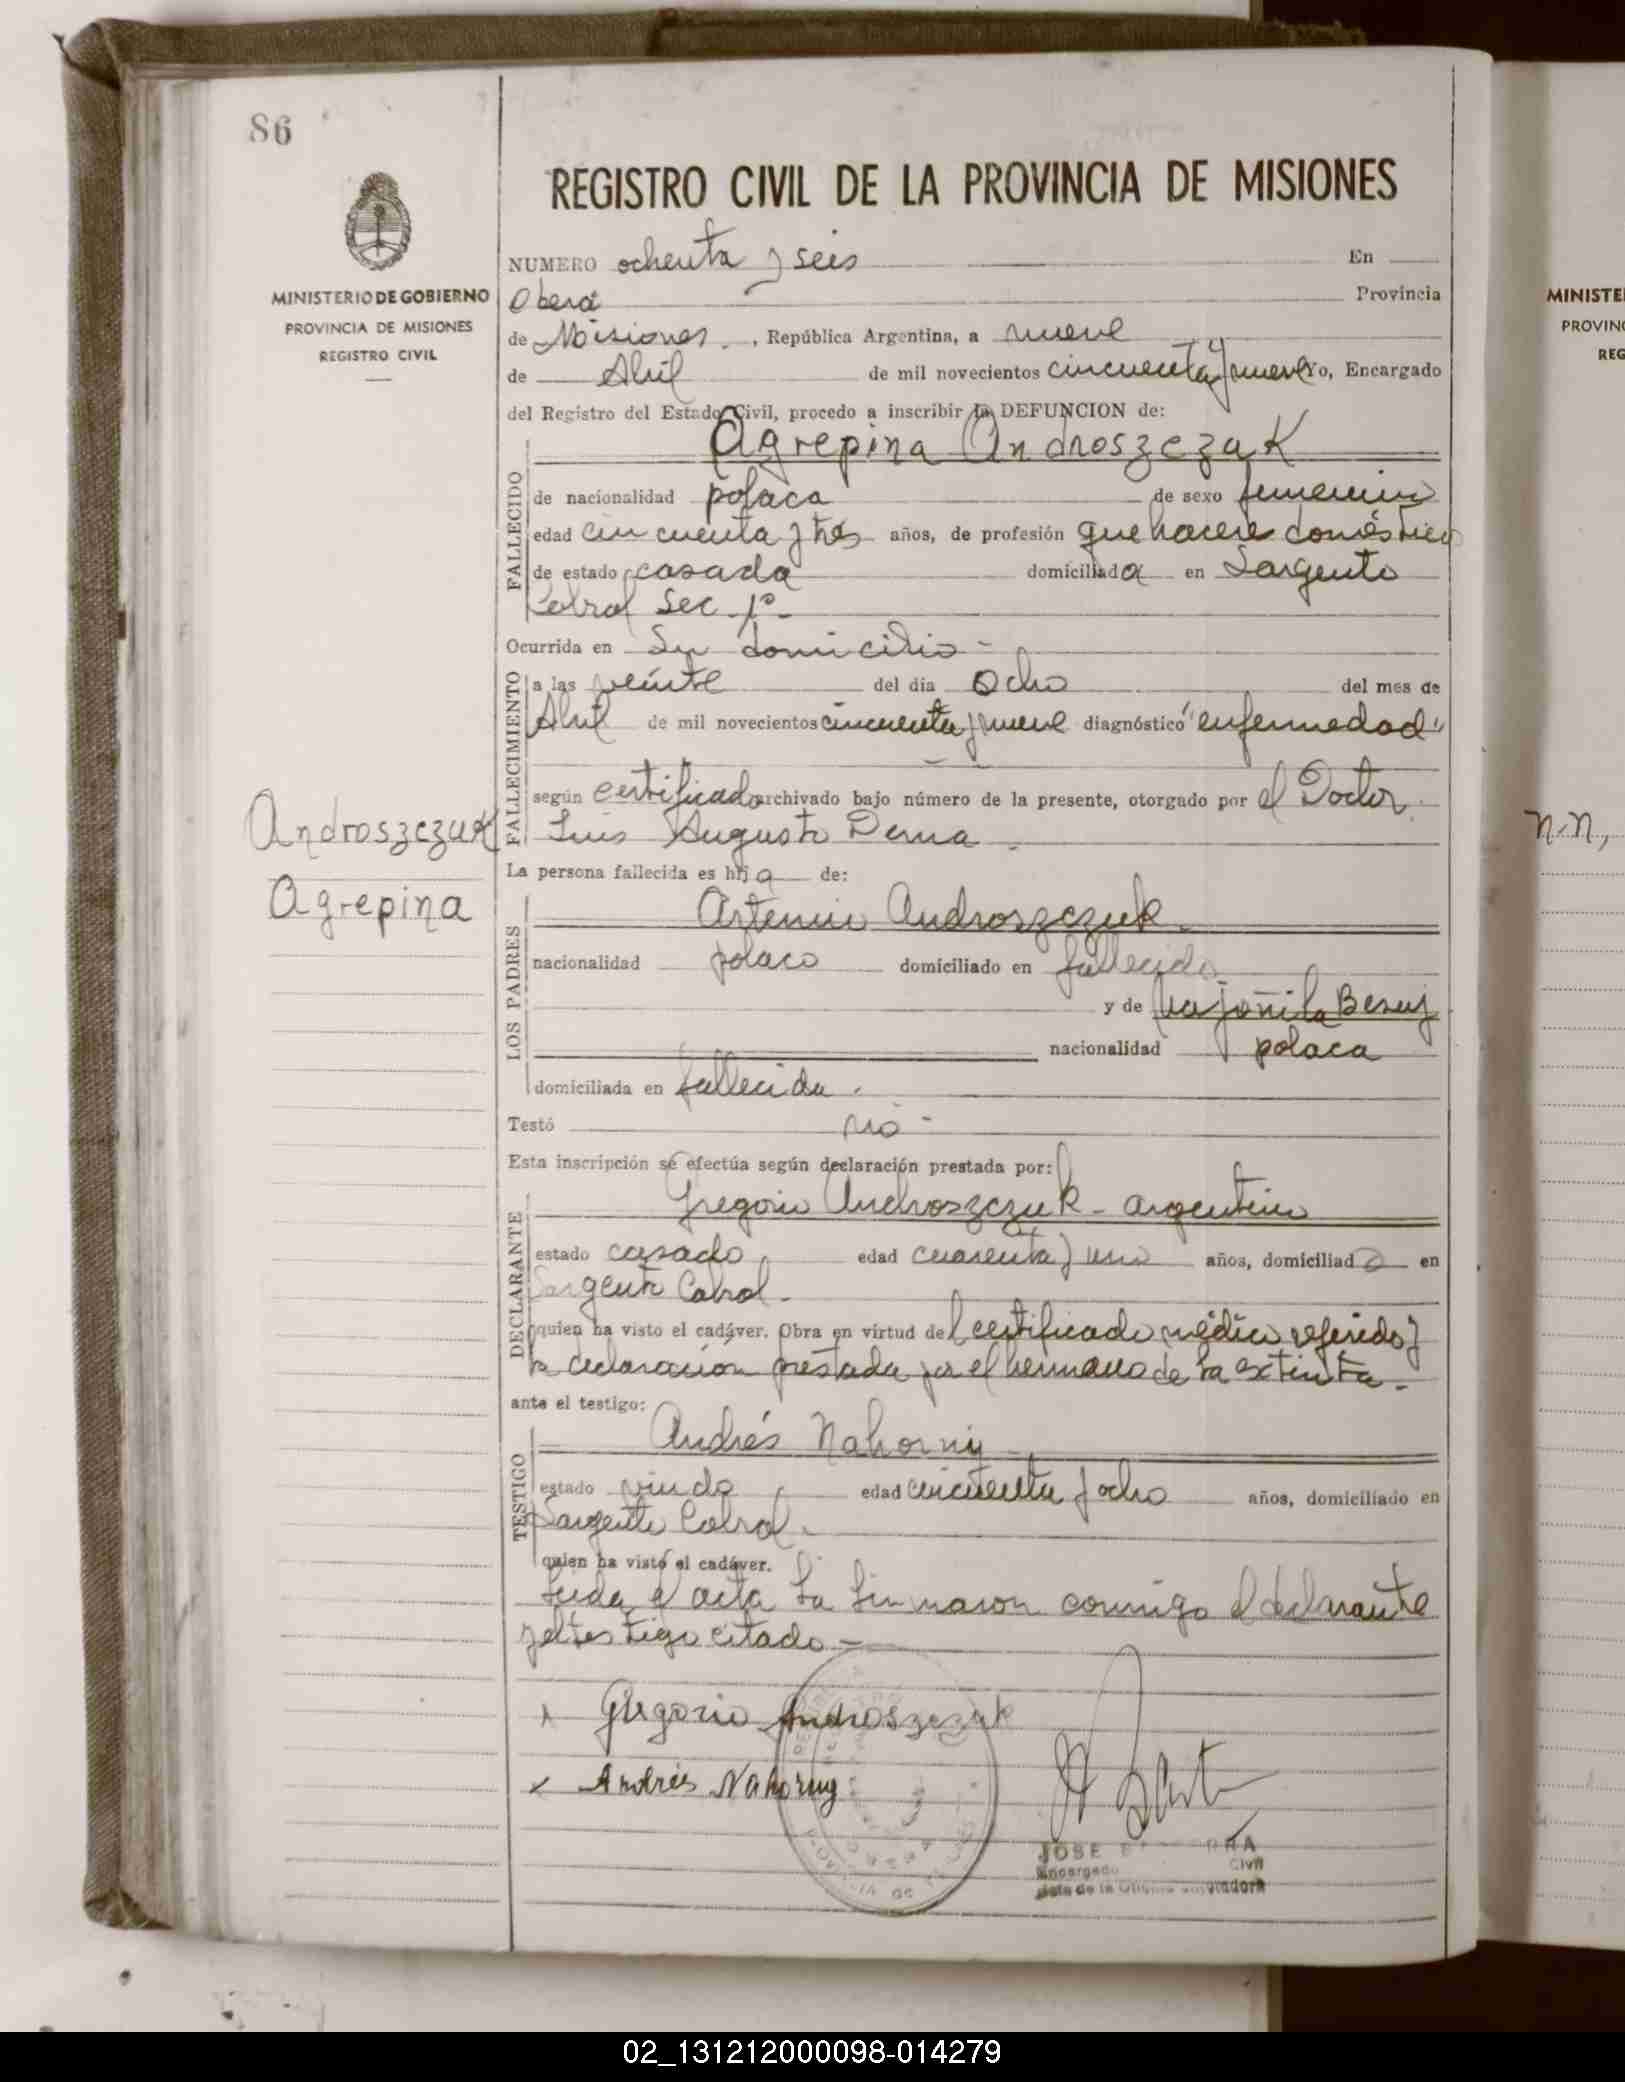 86
REGISTRO CIVIL DE LA PROVINCIA DE MISIONES
MINISTERIO DE GOBIERNO
PROVINCIA DE MISIONES
REGISTRO CIVIL
NUMERO ochenta y seis En
Oberá Provincia
de Misiones. , República Argentina, a nueve
de Abril de mil novecientos cincuenta y nueve Yo, Encargado
del Registro del Estado Civil, procedo a inscribir la DEFUNCION de:
Agrepina Androszczak
FALLECIDO
de nacionalidad polaca de sexo femenino
edad cincuenta y tres años, de profesión quehaceres doméstico
de estado casada domiciliada en Sargento
Cabral Sec. 1º
Ocurrida en Su domicilio
FALLECIMIENTO
a las veinte del día Ocho del mes de
Abril de mil novecientos cincuenta y nueve diagnóstico "enfermedad"
según certificado archivado bajo número de la presente, otorgado por el Doctor
Luis Augusto Derna
Androszczuk
Agrepina
La persona fallecida es hija de:
LOS PADRES
Artemio Androszczuk
nacionalidad polaco domiciliado en fallecido
y de Besuj
nacionalidad polaca
domiciliada en fallecida.
Testó no
Esta inscripción se efectúa según declaración prestada por:
DECLARANTE
Gregorio Androszczuk - argentino
estado casado edad cuarenta y uno años, domiciliado en
Sargento Cabral
quien ha visto el cadáver. Obra en virtud del certificado médico referido y
la declaración prestada por el hermano de la extinta.-
ante el testigo:
TESTIGO
Andrés Nahorniy
estado viudo edad cincuenta y ocho años, domiciliado en
Sargento Cabral.
quien ha visto el cadáver.
Leida el acta la firmaron conmigo el declarante
y el testigo citado
Gregorio Androszczuk
Andrés Nahorny
JOSE
Encargado Civil
Jefe de la Oficina
MINISTE
PROVIN
REG
N.N,
02_131212000098-014279